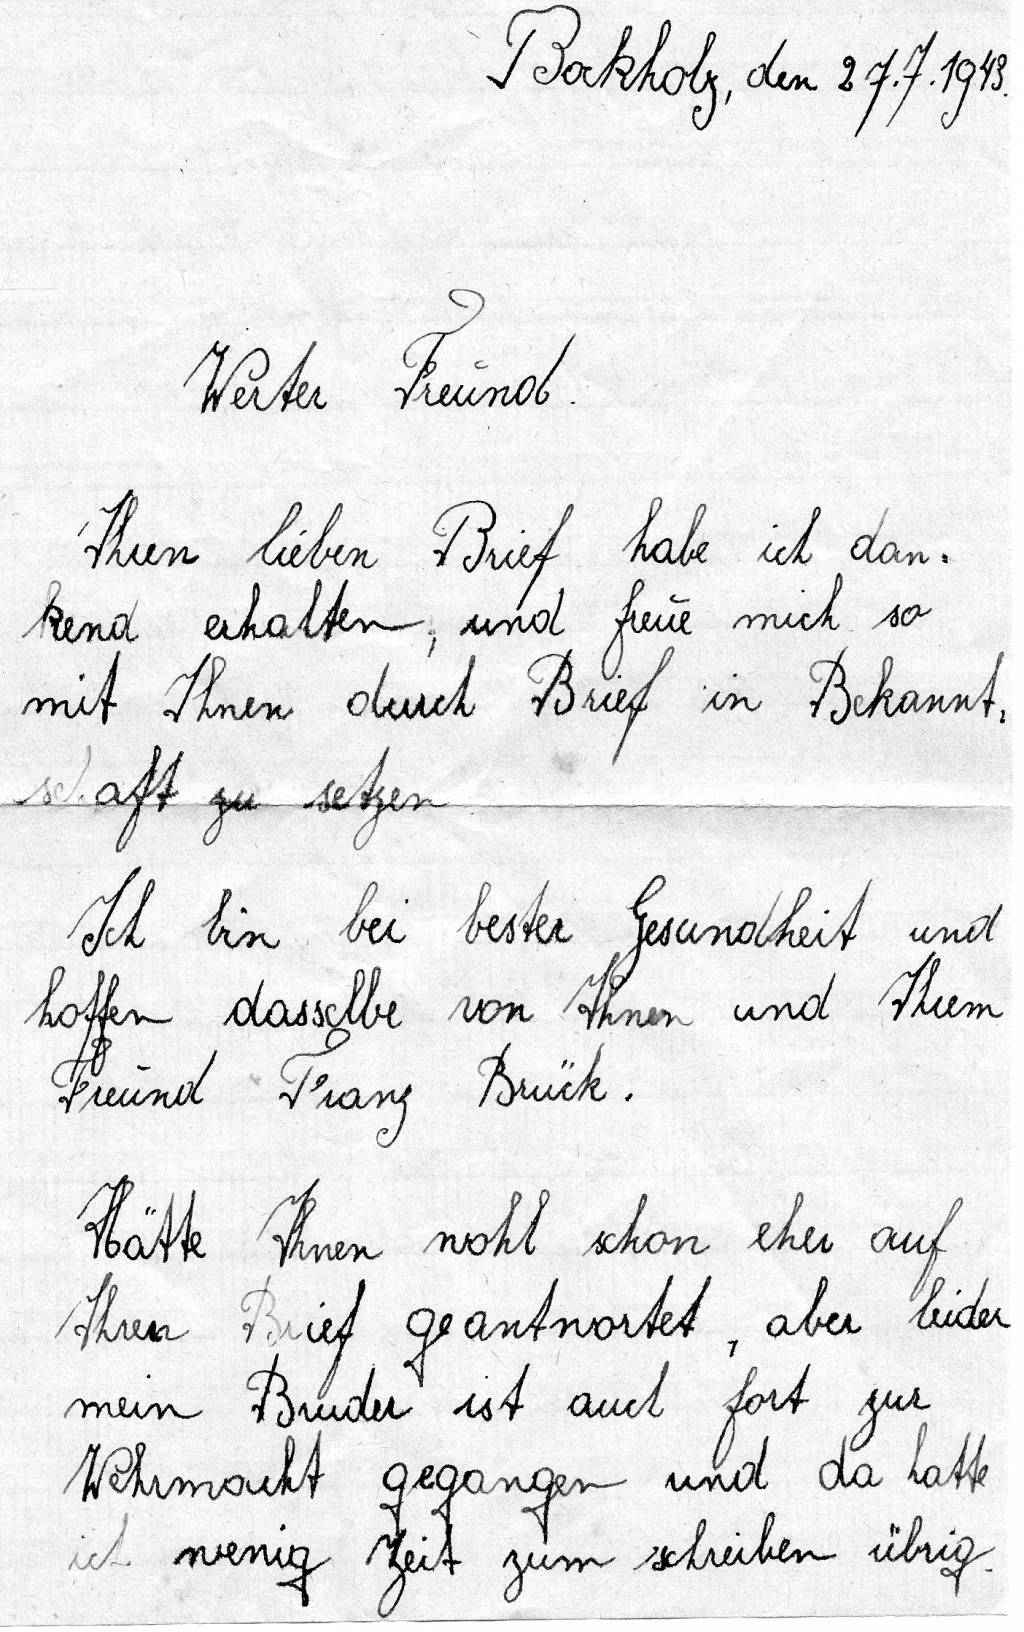 Bockholz, den 27.7.1943.
Werter Freund.
Ihren lieben Brief habe ich dan=
kend erhalten, und freue mich so
mit Ihnen durch Brief in Bekannt=
schaft zu setzen
Ich bin bei bester Gesundheit und
hoffen dasselbe von Ihnen und Ihrem
Freund Franz Brück.
Hätte Ihnen wohl schon eher auf
Ihren Brief geantwortet, aber leider
mein Bruder ist auch fort zur
Wehrmacht gegangen und da hatte
ich wenig Zeit zum schreiben übrig.